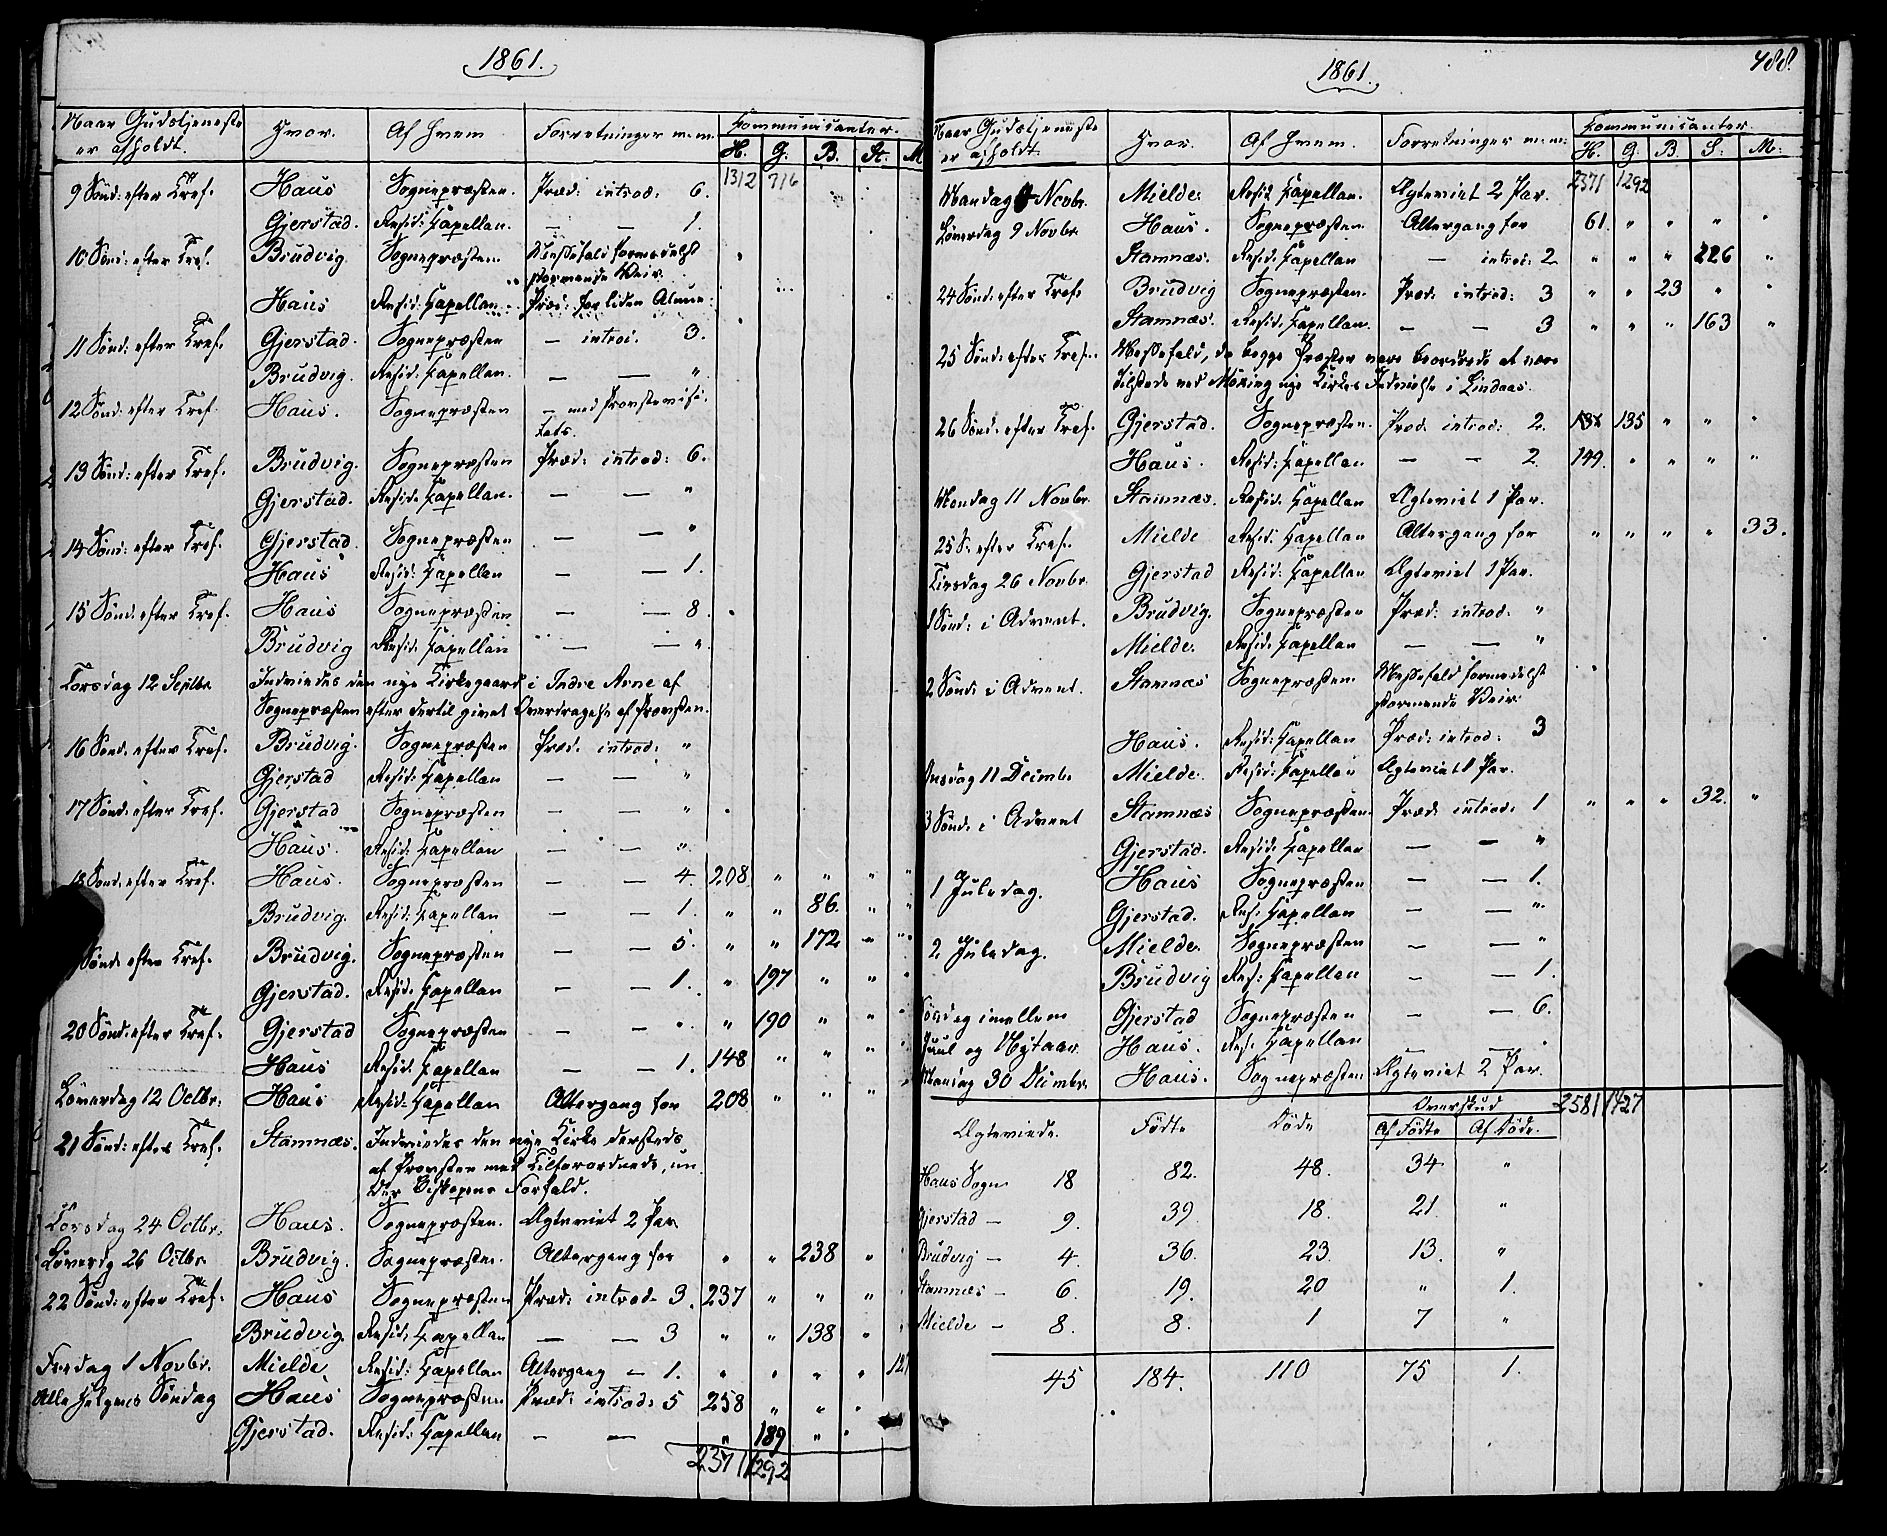 1861.
Naar Gudstjeneste er afholdt. Hvor. Af Hvem Forretninger m: m: Kommunicanter.
H. G. B. St. M
1312 716
9 Sønd: efter Tref. Haus Sognepræsten. Præd: introd: 6.
Gjerstad. Resid: Capellan. — — 1.
10 Sønd: efter Tref. Brudvig Sognepræsten Messefald formedelst
stormende Veir.
Haus Resid: Capellan Præd: for liden Almue
11 Sønd: efter Tref. Gjerstad. Sognepræsten — introd. 3.
Brudvig. Resid: Capellan. — — "
12 Sønd: efter Tref. Haus. Sognepræsten — med Provstevisi-
tats.
13 Sønd: efter Tref. Brudvig. Sognepræsten Præd: introd: 6.
Gjerstad. Resid: Capellan. — — "
14 Sønd: efter Tref. Gjerstad. Sognepræsten — — "
Haus Resid: Capellan — — 1.
15 Sønd: efter Tref. Haus Sognepræsten — — 8.
Brudvig Resid: Capellan — — "
Torsdag 12 Septbr Indviedes den nye Kirkegaard i Indre Arne af
Sognepræsten efter dertil givet Overdragelse af Provsten.
16 Sønd: efter Tref. Brudvig. Sognepræsten Præd: introd: "
Gjerstad Resid: Capellan — — "
17 Sønd: efter Tref. Gjerstad Sognepræsten — — "
Haus. Resid: Capellan — — "
18 Sønd: efter Tref. Haus. Sognepræsten — — 4. 208. " " " "
Brudvig. Resid: Capellan — — 1. " " 86. " "
Sønd: efter Tref. Brudvig. Sognepræsten — — 5. " " 172 " "
Gjerstad. Resid: Capellan — — 1. " 197 " " "
20 Sønd: efter Tref. Gjerstad Sognepræsten — — " " 190 " " "
Haus Resid: Capellan — — 1. 148 " " "
Løverdag 12 Octbr: Haus Resid: Capellan Altergang for 208 " " " "
21 Sønd: efter Tref. Stamnæs. Indviedes den nye Kirke dersteds
af Provsten med Tilforordnede, un-
der Biskopens Forfald.
Torsdag 24 Octbr: Haus. Sognepræsten. Ægteviet 2 Par
Løverdg 26 Octbr Brudvig. Sognepræsten. Altergang for " " 238 " "
22 Sønd: efter Tref. Haus Sognepræsten Præd: introd- 3. 237 " " " "
Brudvig. Resid: Capellan — — 3 " " 138 " "
Fredag 1 Novbr. Mielde Resid: Capellan Altergang — 1. " " " "
Alle Helgens Søndag Haus Sognepræsten Præd: introd: 5 258 " " "
Gjerstad. Resid: Capellan — — " 189 " "
2371 1292
1861.
488.
Naar Gudstjeneste er afholdt. Hvor. Af Hvem. Forretninger m: m: Kommunicanter.
H. G. B. S. M.
2371 1292
Mandag Novbr. Mielde. Resid Capellan. Ægteviet 2 Par.
Løverdag 9 Novbr Haus. Sognepræsten Altergang for 61. " " " "
Stamnæs. Resid: Capellan — introd: 2 " " " 226 "
24 Sønd: efter Tref. Brudvig Sognepræsten. Præd: introd: 3 " " 23 " "
Stamnæs. Resid: Capellan. — — 3 " " " 163 "
25 Sønd: efter Tref. Messefald, da begge Præster vare beordrede at være
tilstede ved Møring nye Kirkes Indvielse i Lindaas.
26 Sønd: efter Tref. Gjerstad. Sognepræsten. Præd: introd: 2. 135 " " "
Haus. Resid: Capellan — — 2. 149. " " " "
Mandag 11 Novbr. Stamnæs. Resid: Capellan Ægteviet 1 Par.
25 S. efter Tref. Mielde Resid: Capellan Altergang for " " " " 33.
Tirsdag 26 Novbr. Gjerstad Resid: Capellan Ægteviet 1 Par.
1 Sønd: i Advent. Brudvig. Sognepræsten Præd: introd: "
Mielde. Resid: Capellan — — "
2 Sønd: i Advent. Stamnæs Sognepræsten Messefald formedelst
stormende Veir
Haus. Resid: Capellan Præd: introd: 3
Onsdag 11 Decembr Mielde. Resid: Capellan Ægteviet 1 Par.
3 Sønd: i Advent Stamnæs Sognepræsten. Præd: introd: 1 " " " 32. "
Gjerstad. Resid: Capellan — — "
1 Juledag. Haus Sognepræsten — — 1.
Gjerstad. Res: Capellan — — "
2 Juledag. Mielde. Sognepræsten — — "
Brudvig Res: Capellan — — 1.
Søndag imellem Gjerstad Sognepræsten — — 6.
Juul og Nytaar Haus. Res: Capellan — — .
Mandag 30 Decembr Haus. Sognepræsten Ægteviet 2 Par.
2581 1427
Ægteviede. Fødte Døde Overskud
Af Fødte Af Døde.
Haus Sogn 18 82. 48. 34 "
Gjerstad — 9. 39. 18. 21. "
Brudvig — 4. 36. 23. 13. "
Stamnæs — 6. 19. 20 " 1.
Mielde — 8. 8. 1 7 "
45 184. 110 75 1.